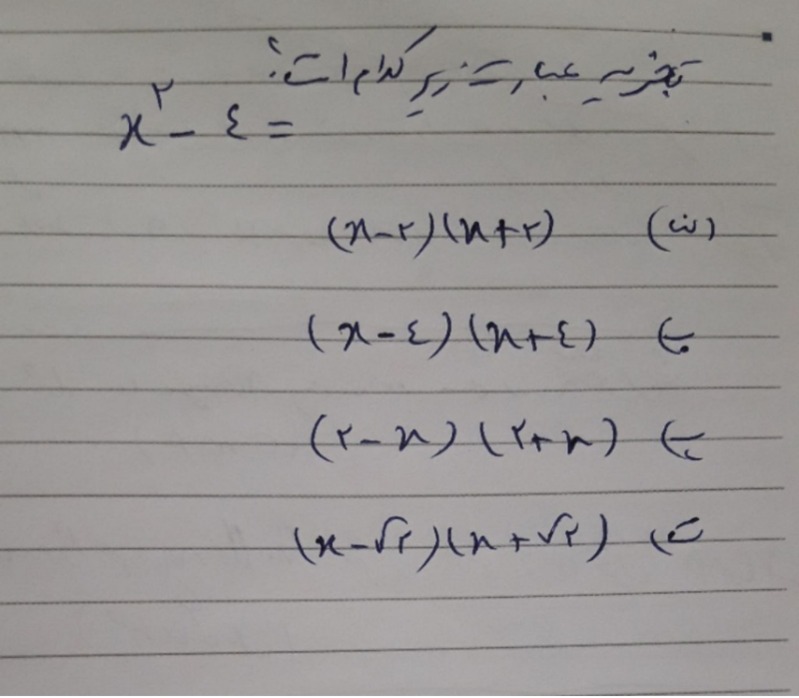 تجزیه عبارت زیر کدام است؟
x^۲ - ٤ =
الف) (x-۲)(x+۲)
ب) (x-٤)(x+٤)
پ) (۲-x)(۲+x)
ت) (x-√۲)(x+√۲)